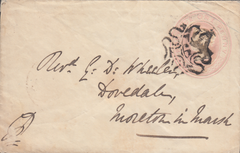 Revd. G. D. Wheeler,
Dovedale,
Moreton in Marsh